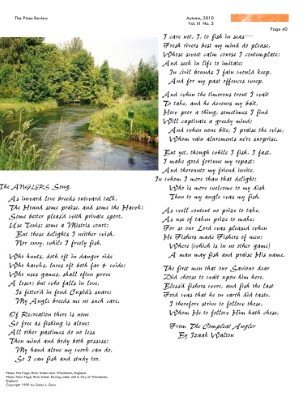 The Pines Review
Autumn, 2010
Vol. III No. 3
Page 40
The ANGLERS Song.
As inward love breeds outward talk,
The Hound some praise, and some the Hawk:
Some better pleas'd with private sport,
Use Tenis; some a Mistris court:
But these delights I neither wish,
Nor envy, while I freely fish.
Who hunts, doth oft in danger ride
Who hawks, lures oft both far & wide:
Who uses games, shall often prove
A loser; but who falls in love,
Is fetter'd in fond Cupid's snare:
My Angle breeds me no such care.
Of Recreation there is none
So free as fishing is alone;
All other pastimes do no less
Then mind and body both possess:
My hand alone my work can do,
So I can fish and study too.
I care not, I, to fish in seas
Fresh rivers best my mind do please,
Whose sweet calm course I contemplate;
And seek in life to imitate:
In civil bounds I fain would keep,
And for my past offences weep.
And when the timorous trout I wait
To take, and he devours my bait,
How poor a thing, sometimes I find
Will captivate a greedy mind:
And when none bite, I praise the wise,
Whom vain alurements ne're surprise.
But yet, though while I fish, I fast,
I make good fortune my repast;
And thereunto my friend invite,
In whom I more than that delight:
Who is more welcome to my dish
Then to my angle was my fish.
As well content no prize to take,
As use of taken prize to make:
For so our Lord was pleased when
He Fishers made Fishers of men:
Where (which is in no other game)
A man may fish and praise His name.
The first men that our Saviour dear
Did choose to wait upon him here,
Blessed fishers were, and fish the last
Food was that he on earth did taste.
I therefore strive to follow these,
Whom He to follow Him hath chose.
From The Compleat Angler
By Izaak Walton